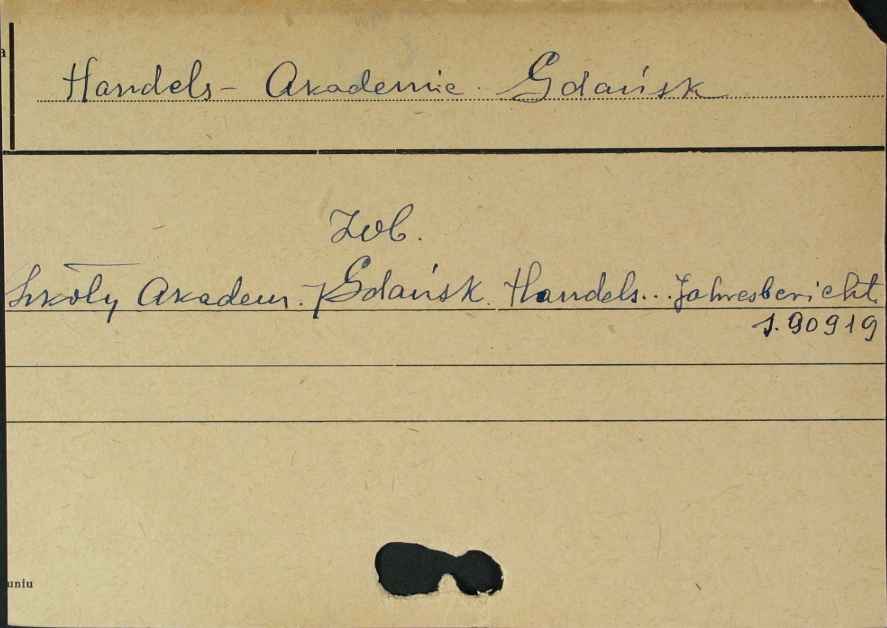 a
Handels- Akademie. Gdańsk
Zob.
Szkoły Akadem. Gdańsk. Handels... Jahresbericht.
S. 90919
uniu